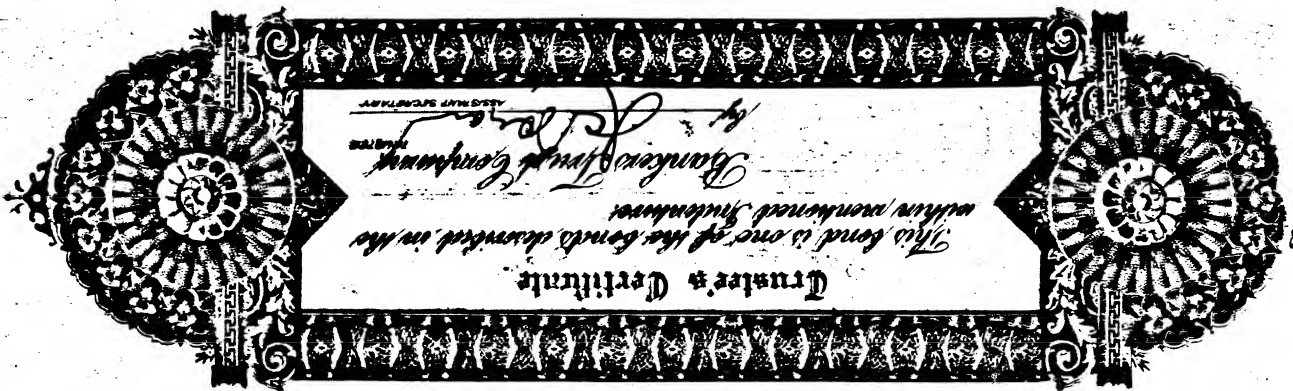 Trustee's Certificate
This bond is one of the bonds described in the
within mentioned Indenture.
Bankers Trust Company
TRUSTEE
By
ASSISTANT SECRETARY